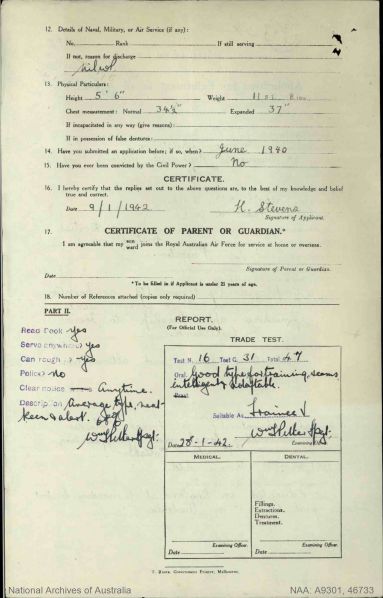 12. Details of Naval, Military, or Air Service (if any):
No. Rank If still serving
If not, reason for discharge
13. Physical Particulars:
Height 5' 6" Weight 11 st.
Chest measurement: Normal 34½" Expanded 37"
If incapacitated in any way (give reasons):
If in possession of false dentures:
14. Have you submitted an application before; if so, when? June 1940
15. Have you ever been convicted by the Civil Power? No
CERTIFICATE.
16. I hereby certify that the replies set out to the above questions are, to the best of my knowledge and belief
true and correct.
Date 9/1/1942 H. Stevens
Signature of Applicant.
17. CERTIFICATE OF PARENT OR GUARDIAN.*
I am agreeable that my son
ward joins the Royal Australian Air Force for service at home or overseas.
Signature of Parent or Guardian.
Date
*To be filled in if Applicant is under 21 years of age.
18. Number of References attached (copies only required)
PART II.
REPORT.
(For Official Use Only).
Read Book yes
Serve anywhere? yes
Can rough it? yes
Police? no
Clear notice Anytime.
Description Average type, neat
keen & alert.
TRADE TEST.
Test N. 16 Test G. 31 Total 47
Oral Good type for training, seems
intelligent & adaptable.
Suitable As Trainee
Date 28-1-42. Examining
MEDICAL. DENTAL.
Fillings.
Extractions.
Dentures.
Treatment.
Examining Officer. Examining Officer.
Date Date
Government Printer, Melbourne.
National Archives of Australia NAA: A9301, 46733